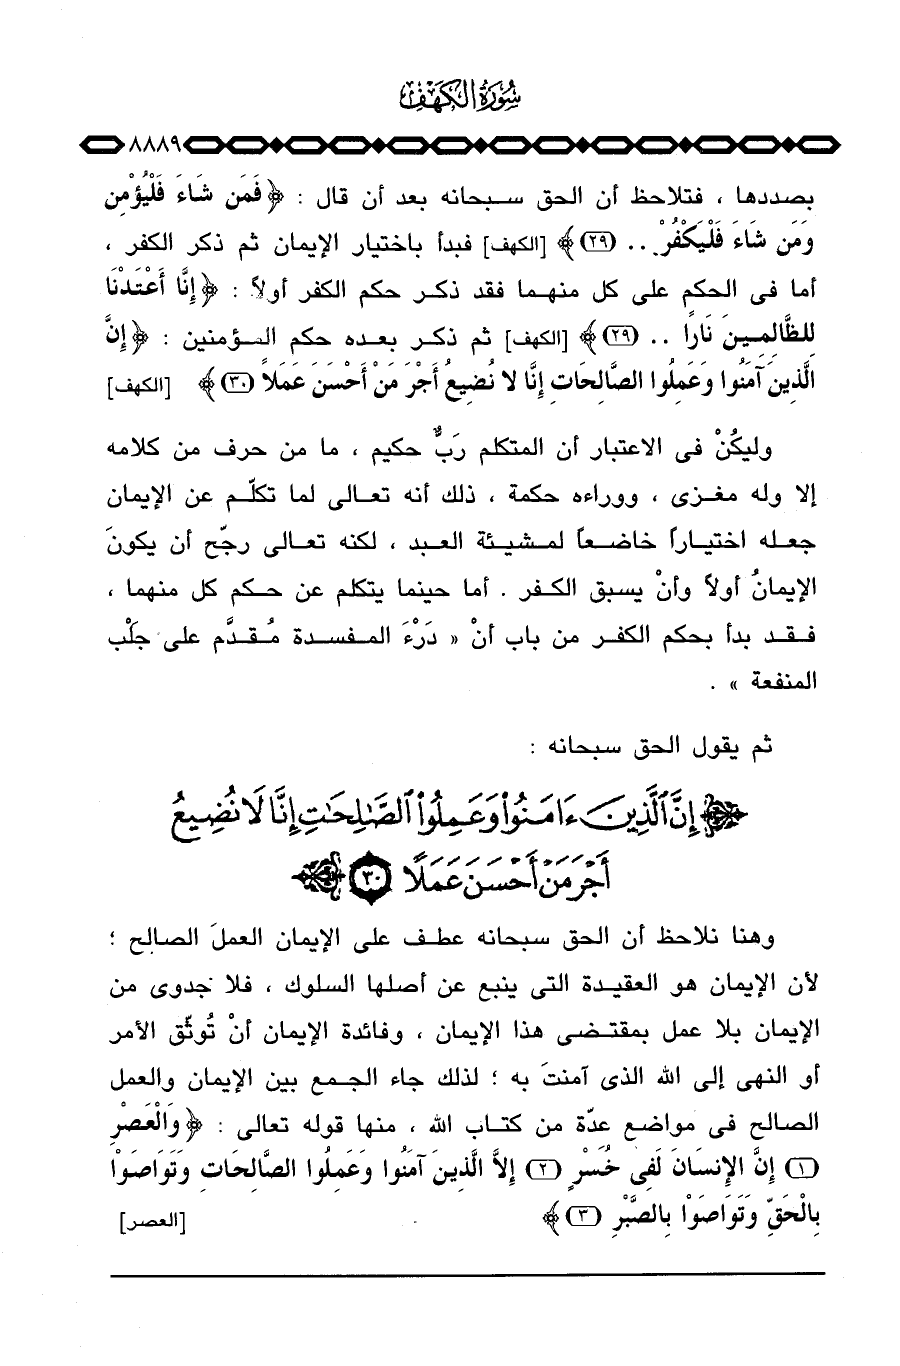 سورة الكهف
٨٨٨٩
بصددها ، فتلاحظ أن الحق سبحانه بعد أن قال : ﴿ فَمَن شَاءَ فَلْيُؤْمِن
وَمَن شَاءَ فَلْيَكْفُرْ .. (٢٩) ﴾ [الكهف] فبدأ باختيار الإيمان ثم ذكر الكفر ،
أما فى الحكم على كل منهما فقد ذكر حكم الكفر أولاً : ﴿ إِنَّا أَعْتَدْنَا
لِلظَّالِمِينَ نَارًا .. (٢٩) ﴾ [الكهف] ثم ذكر بعده حكم المؤمنين : ﴿ إِنَّ
الَّذِينَ آمَنُوا وَعَمِلُوا الصَّالِحَاتِ إِنَّا لا نُضِيعُ أَجْرَ مَنْ أَحْسَنَ عَمَلاً (٣٠) ﴾ [الكهف]
وليكُنْ فى الاعتبار أن المتكلم رَبٌّ حكيم ، ما من حرف من كلامه
إلا وله مغزى ، ووراءه حكمة ، ذلك أنه تعالى لما تكلّم عن الإيمان
جعله اختياراً خاضعاً لمشيئة العبد ، لكنه تعالى رجّح أن يكونَ
الإيمانُ أولاً وأنْ يسبق الكفر . أما حينما يتكلم عن حكم كل منهما ،
فقد بدأ بحكم الكفر من باب أنْ « دَرْءَ المفسدة مُقدَّم على جَلْب
المنفعة » .
ثم يقول الحق سبحانه :
﴿ إِنَّ ٱلَّذِينَ ءَامَنُوا۟ وَعَمِلُوا۟ ٱلصَّـٰلِحَـٰتِ إِنَّا لَا نُضِيعُ
أَجْرَ مَنْ أَحْسَنَ عَمَلًا ٣٠ ﴾
وهنا نلاحظ أن الحق سبحانه عطف على الإيمان العملَ الصالح ؛
لأن الإيمان هو العقيدة التى ينبع عن أصلها السلوك ، فلا جدوى من
الإيمان بلا عمل بمقتضى هذا الإيمان ، وفائدة الإيمان أنْ تُوثّق الأمر
أو النهى إلى الله الذى آمنتَ به ؛ لذلك جاء الجمع بين الإيمان والعمل
الصالح فى مواضع عدّة من كتاب الله ، منها قوله تعالى : ﴿ وَالْعَصْرِ
(١) إِنَّ الإِنسَانَ لَفِى خُسْرٍ (٢) إِلاَّ الَّذِينَ آمَنُوا وَعَمِلُوا الصَّالِحَاتِ وَتَوَاصَوْا
بِالْحَقِّ وَتَوَاصَوْا بِالصَّبْرِ (٣) ﴾ [العصر]